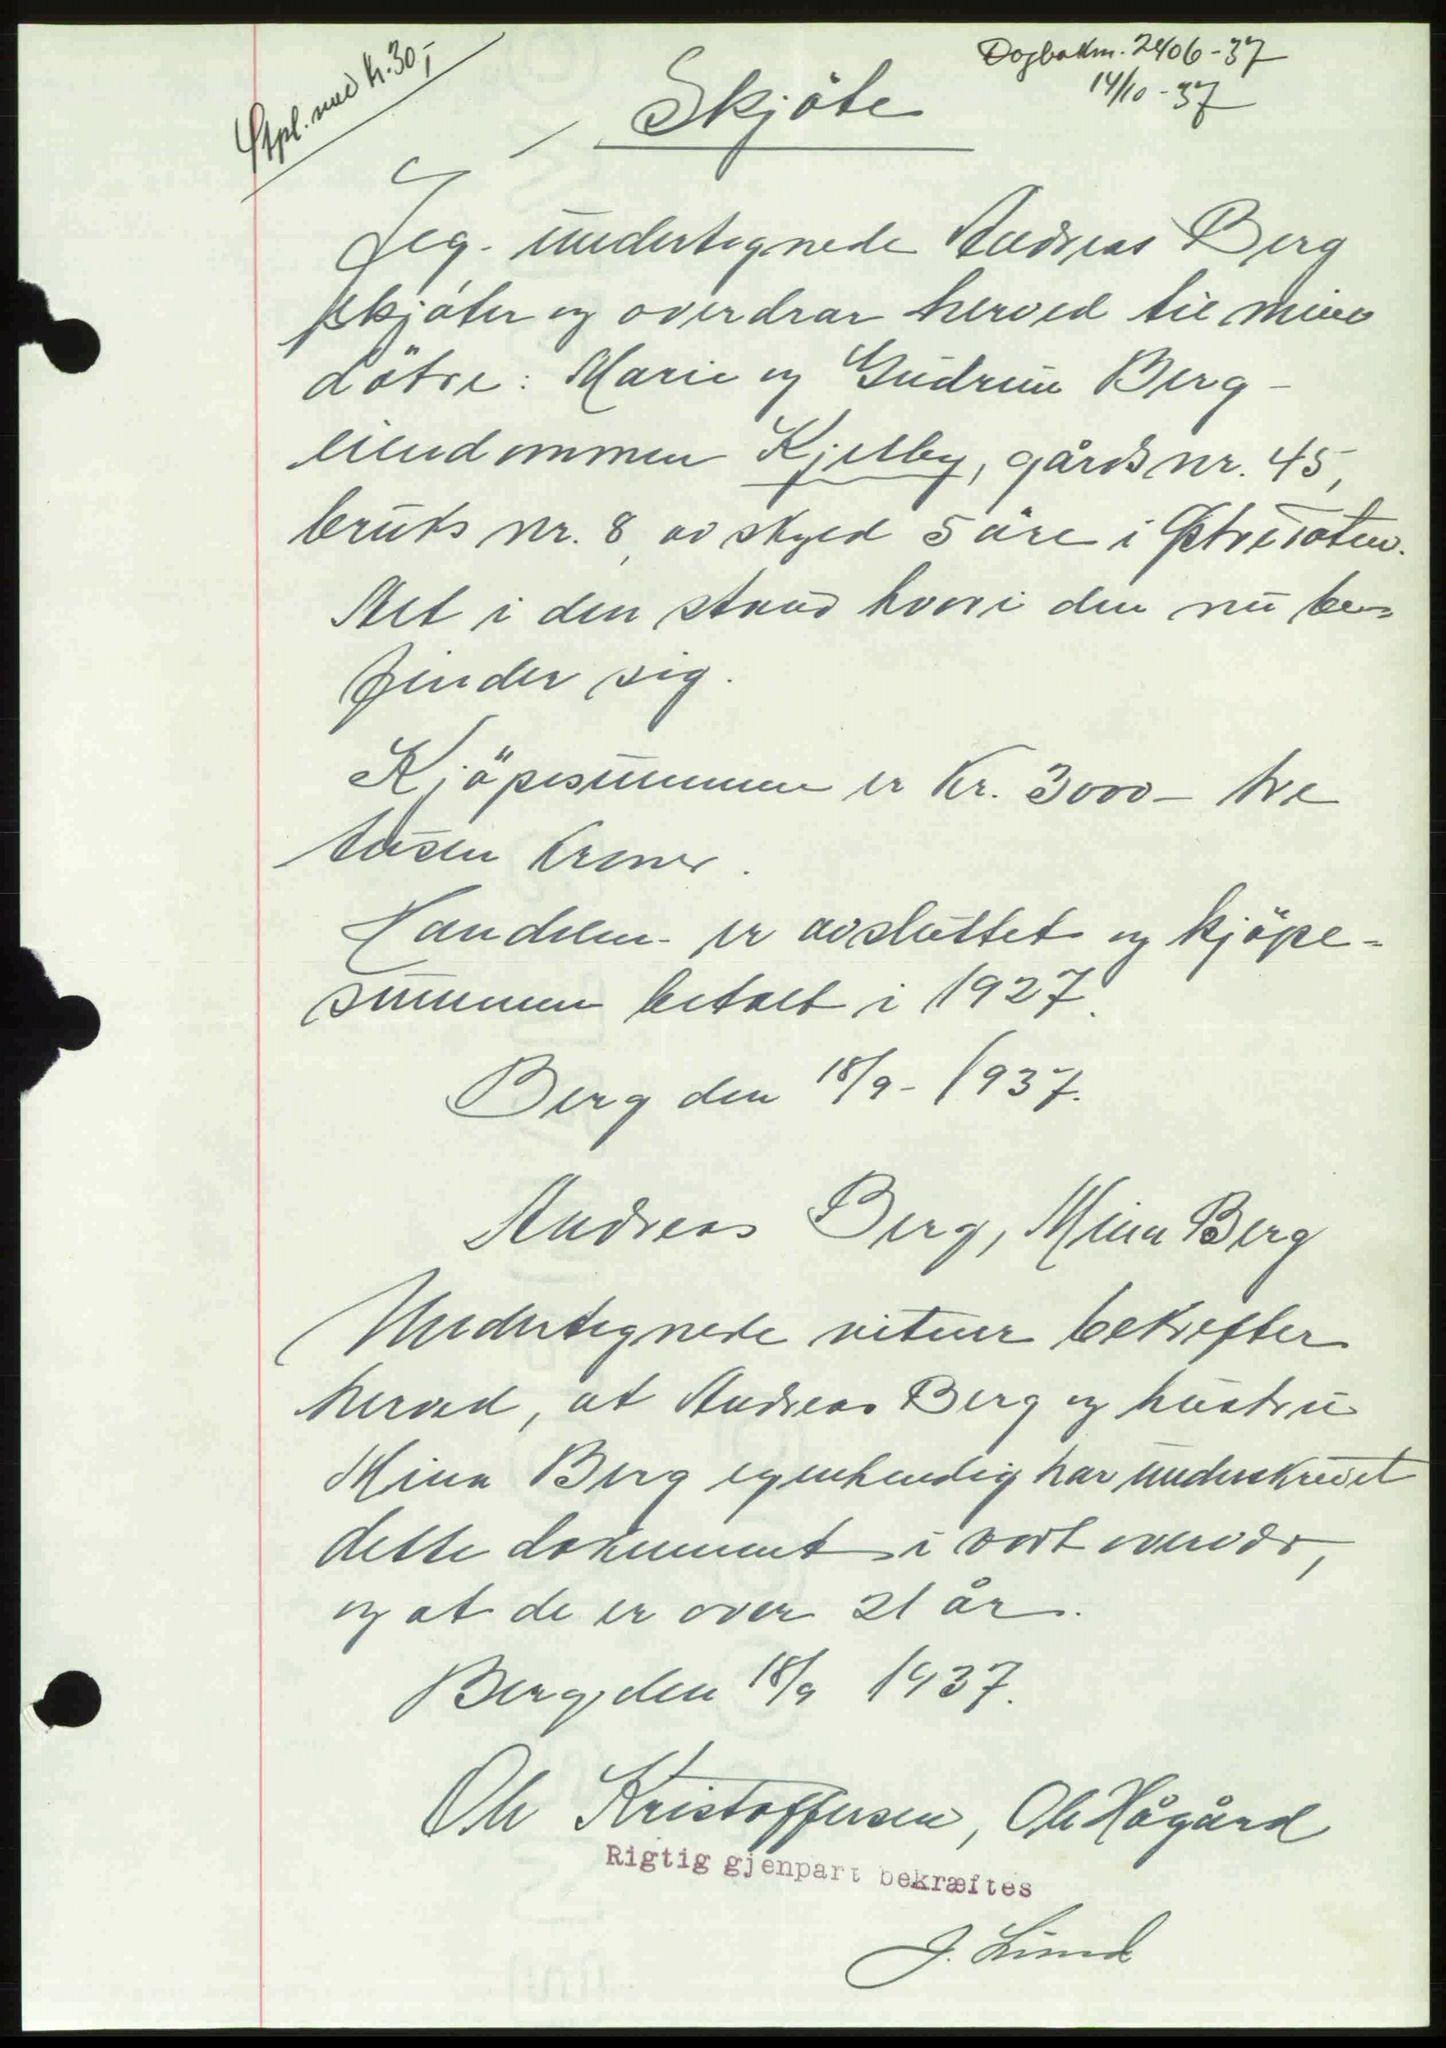 Stpl. med kr. 30,-
Dagboknr. 2406-37
14/10-37
Skjöte
Jeg undertegnede Andreas Berg
skjöter og overdrar herved til mine
dötre: Marie og Gudrun Berg -
eiendommen Kjelby, gårds nr. 45,
bruks nr. 8, av skyld 5 öre i
Alt i den stand hvori den nu be-
finder sig.
Kjöpesummen er kr. 3000- tre
tusen kroner.
Handelen er avsluttet og kjöpe-
summen betalt i 1927.
Berg den 18/9 - 1937.
Andreas Berg, Mina Berg
Undertegnede vitner bekrefter
herved, at Andreas Berg og hustru
Mina Berg egenhendig har underskrevet
dette dokument i vort overvær,
og at de er over 21 år.
Berg, den 18/9 1937.
Ole Kristoffersen, Ole Hågård
Rigtig gjenpart bekræftes
J. Lund